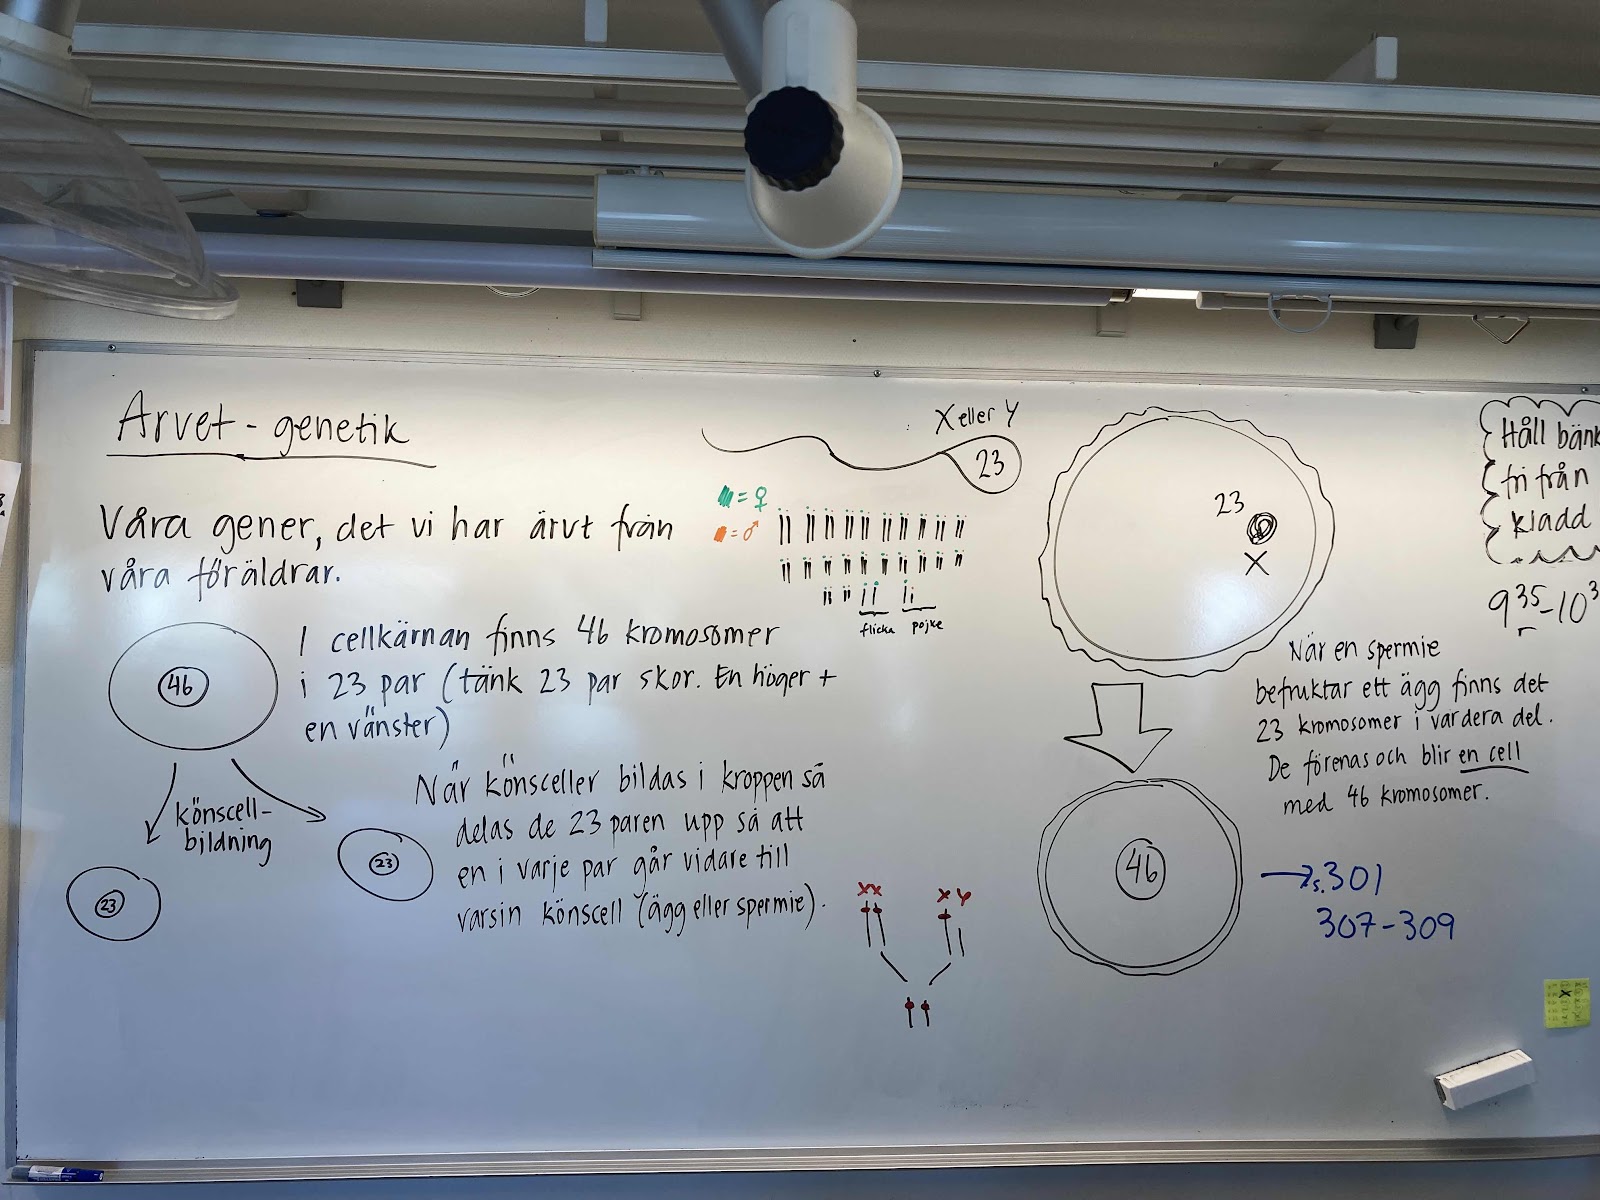 Arvet - genetik
Våra gener, det vi har ärvt från
våra föräldrar.
46
I cellkärnan finns 46 kromosomer
i 23 par (tänk 23 par skor. En höger +
en vänster)
könscell-
bildning
23
23
När könsceller bildas i kroppen så
delas de 23 paren upp så att
en i varje par går vidare till
varsin könscell (ägg eller spermie).
X eller Y
23
= ♀
= ♂
flicka
pojke
XX
XY
23
X
När en spermie
befruktar ett ägg finns det
23 kromosomer i vardera del.
De förenas och blir en cell
med 46 kromosomer.
46
→ s. 301
307-309
Håll bänk
fri från
kladd
9 35 - 10 3